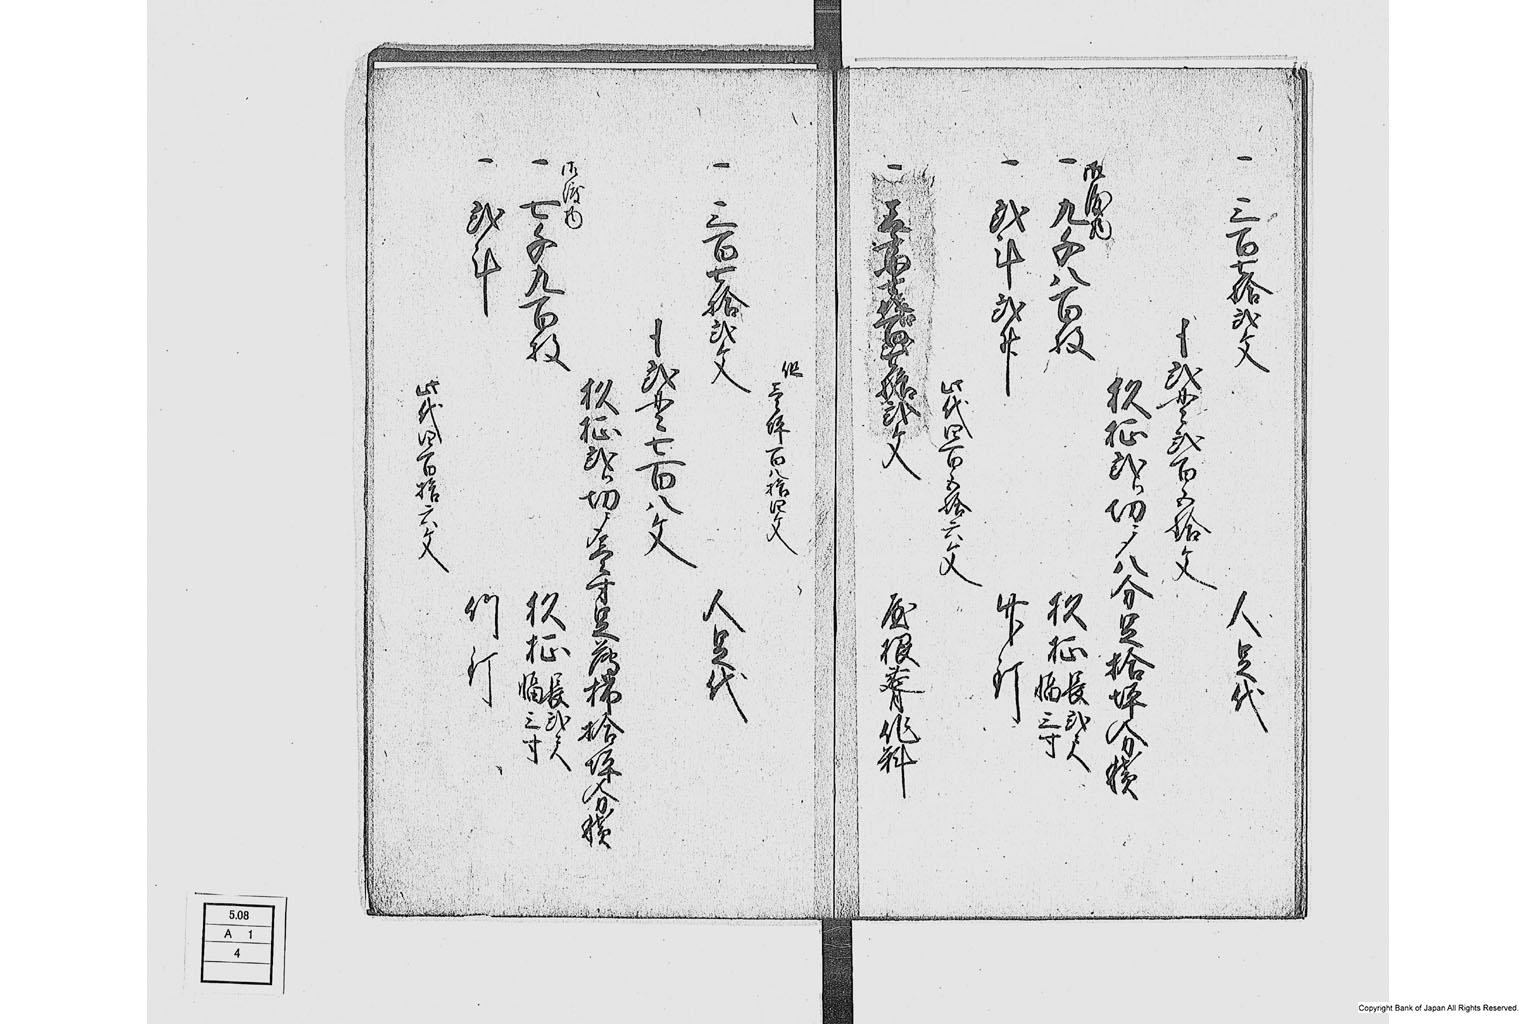 一 三百七拾弐文 人足代
〆弐〆弐百五拾文
杉柾弐尺切ニ〆八分足拾坪分積
御渡内
一 九千八百枚 杉柾 長弐尺 幅三寸
一 弐斗弐升 竹釘
此代四百五拾六文
一 文 屋根葺作料
但壱坪百八拾四文
一 三百七拾弐文 人足代
〆弐〆七百八文
杉柾弐尺切ニ〆壱寸足 拾坪分積
御渡内
一 七千九百枚 杉柾 長弐尺 幅三寸
一 弐斗 竹釘
此代四百拾六文
5.08
A 1
4
Copyright Bank of Japan All Rights Reserved.